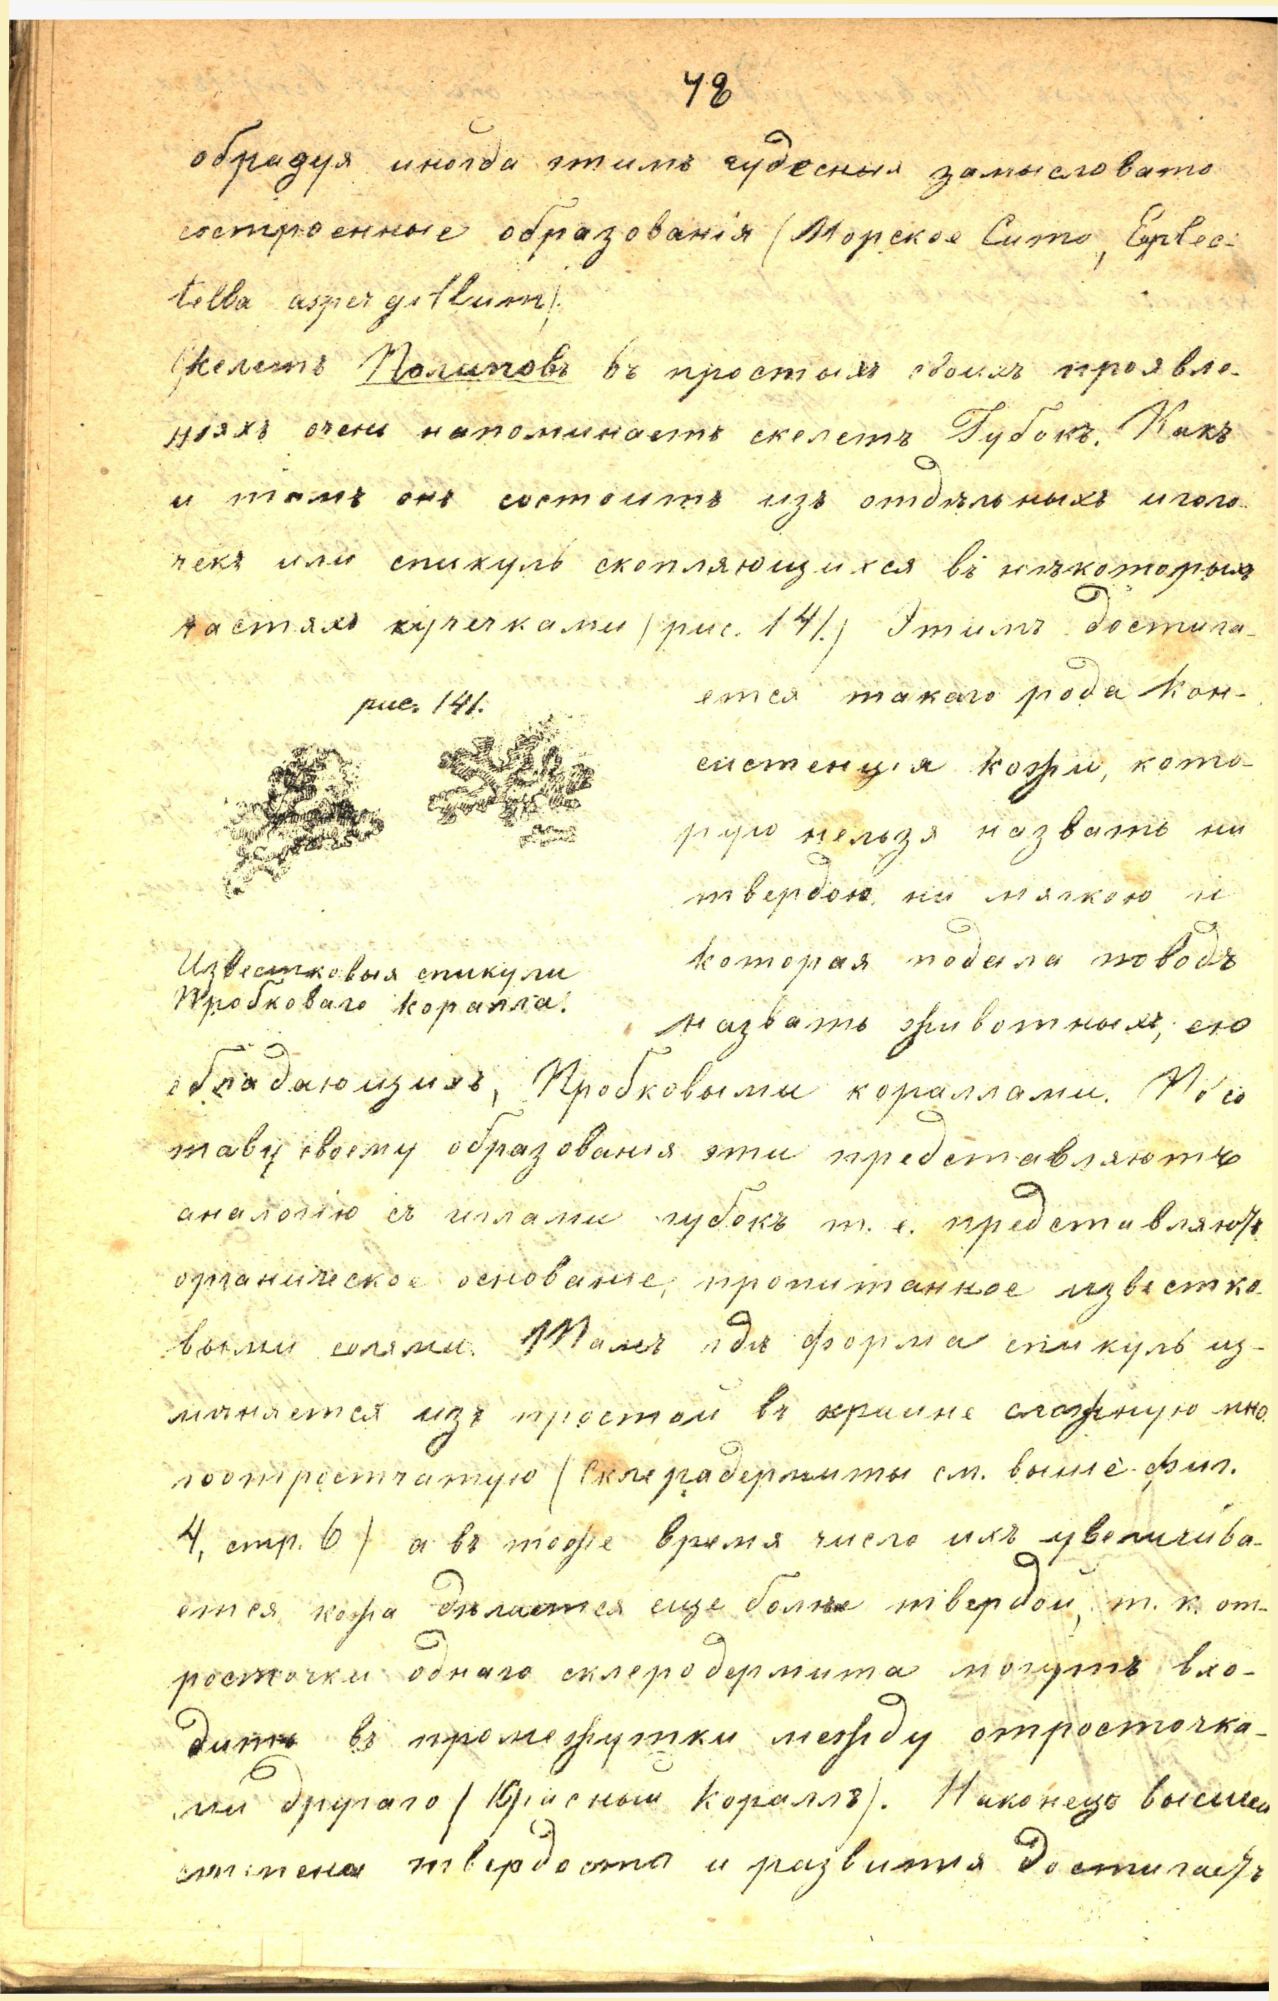 48
обрадуя иногда этимъ чудесныя замысловато
состроенные образованія (Морское Сито, Euplec-
tella aspergillum).
Скелетъ Полиповъ въ простыхъ своихъ проявле-
ніяхъ очень напоминаетъ скелетъ Губокъ. Какъ
и тамъ онъ состоитъ изъ отдѣльныхъ иголо-
чекъ или спикулъ скопляющихся въ нѣкоторыхъ
частяхъ кучечками (рис. 141.) Этимъ достига-
рис. 141.
Известковыя спикули
Пробковаго коралла.
ется такого рода кон-
систенція кожи, кото-
рую нельзя назвать ни
твердою ни мягкою и
которая подала поводъ
назвать животныхъ, ею
обладающихъ, Пробковыми кораллами. По со
таву своему образованія эти представляютъ
аналогію съ иглами губокъ т. е. представляютъ
органическое основаніе, пропитанное известко-
выми солями. Тамъ гдѣ форма спикулъ из-
мѣняется изъ простой въ крайне сложную мно-
гоотростчатую (Склеродермиты см. выше фиг.
4, стр. 6) а въ тоже время число ихъ увеличива-
ется кожа дѣлается еще болѣе твердой, т. к. от-
росточки одного склеродермита могутъ вхо-
дить въ промежутки между отросточка-
ми другаго (Красный Кораллъ). Наконецъ высшей
степени твердости и развитія достигаетъ